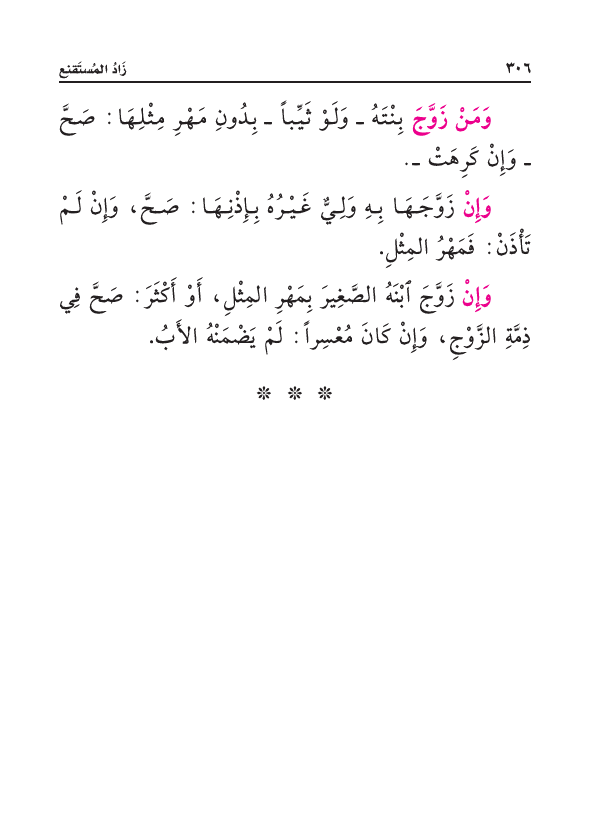 ٣٠٦ زَادُ المُستَقنِع
وَمَنْ زَوَّجَ بِنْتَهُ ـ وَلَوْ ثَيِّباً ـ بِدُونِ مَهْرِ مِثْلِهَا: صَحَّ
ـ وَإِنْ كَرِهَتْ ـ.
وَإِنْ زَوَّجَهَا بِهِ وَلِيٌّ غَيْرُهُ بِإِذْنِهَا: صَحَّ، وَإِنْ لَمْ
تَأْذَنْ: فَمَهْرُ المِثْلِ.
وَإِنْ زَوَّجَ ٱبْنَهُ الصَّغِيرَ بِمَهْرِ المِثْلِ، أَوْ أَكْثَرَ: صَحَّ فِي
ذِمَّةِ الزَّوْجِ، وَإِنْ كَانَ مُعْسِراً: لَمْ يَضْمَنْهُ الأَبُ.